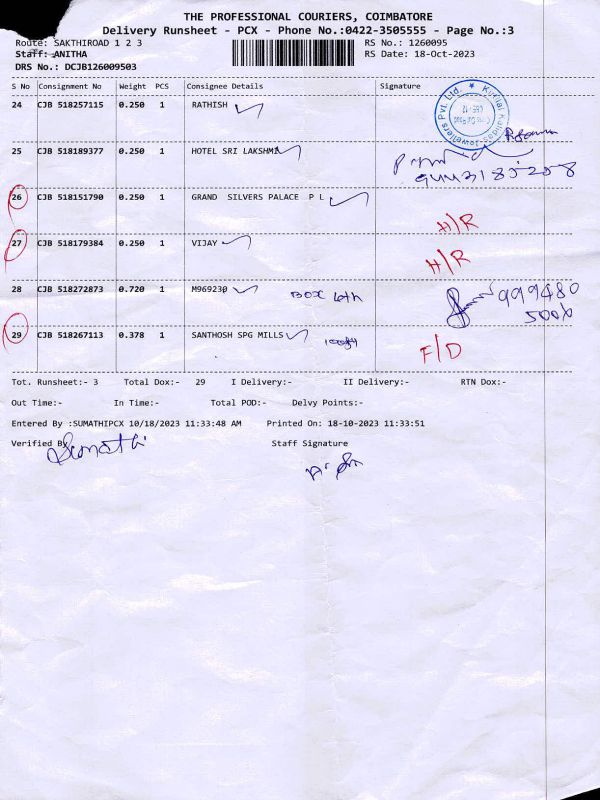 THE PROFESSIONAL COURIERS, COIMBATORE
Delivery Runsheet - PCX - Phone No.:0422-3505555 - Page No.:3
Route: SAKTHIROAD 1 2 3 RS No.: 1260095
Staff: ANITHA RS Date: 18-Oct-2023
DRS No.: DCJB126009503
S No Consignment No Weight PCS Consignee Details Signature
24 CJB 518257115 0.250 1 RATHISH
25 CJB 518189377 0.250 1 HOTEL SRI LAKSHMI
26 CJB 518151790 0.250 1 GRAND SILVERS PALACE P L H/R
27 CJB 518179384 0.250 1 VIJAY H/R
28 CJB 518272873 0.720 1 M969230 BOX 999480
29 CJB 518267113 0.378 1 SANTHOSH SPG MILLS F/D
Tot. Runsheet:- 3 Total Dox:- 29 I Delivery:- II Delivery:- RTN Dox:-
Out Time:- In Time:- Total POD:- Delvy Points:-
Entered By :SUMATHIPCX 10/18/2023 11:33:48 AM Printed On: 18-10-2023 11:33:51
Verified By Staff Signature
Sumathi